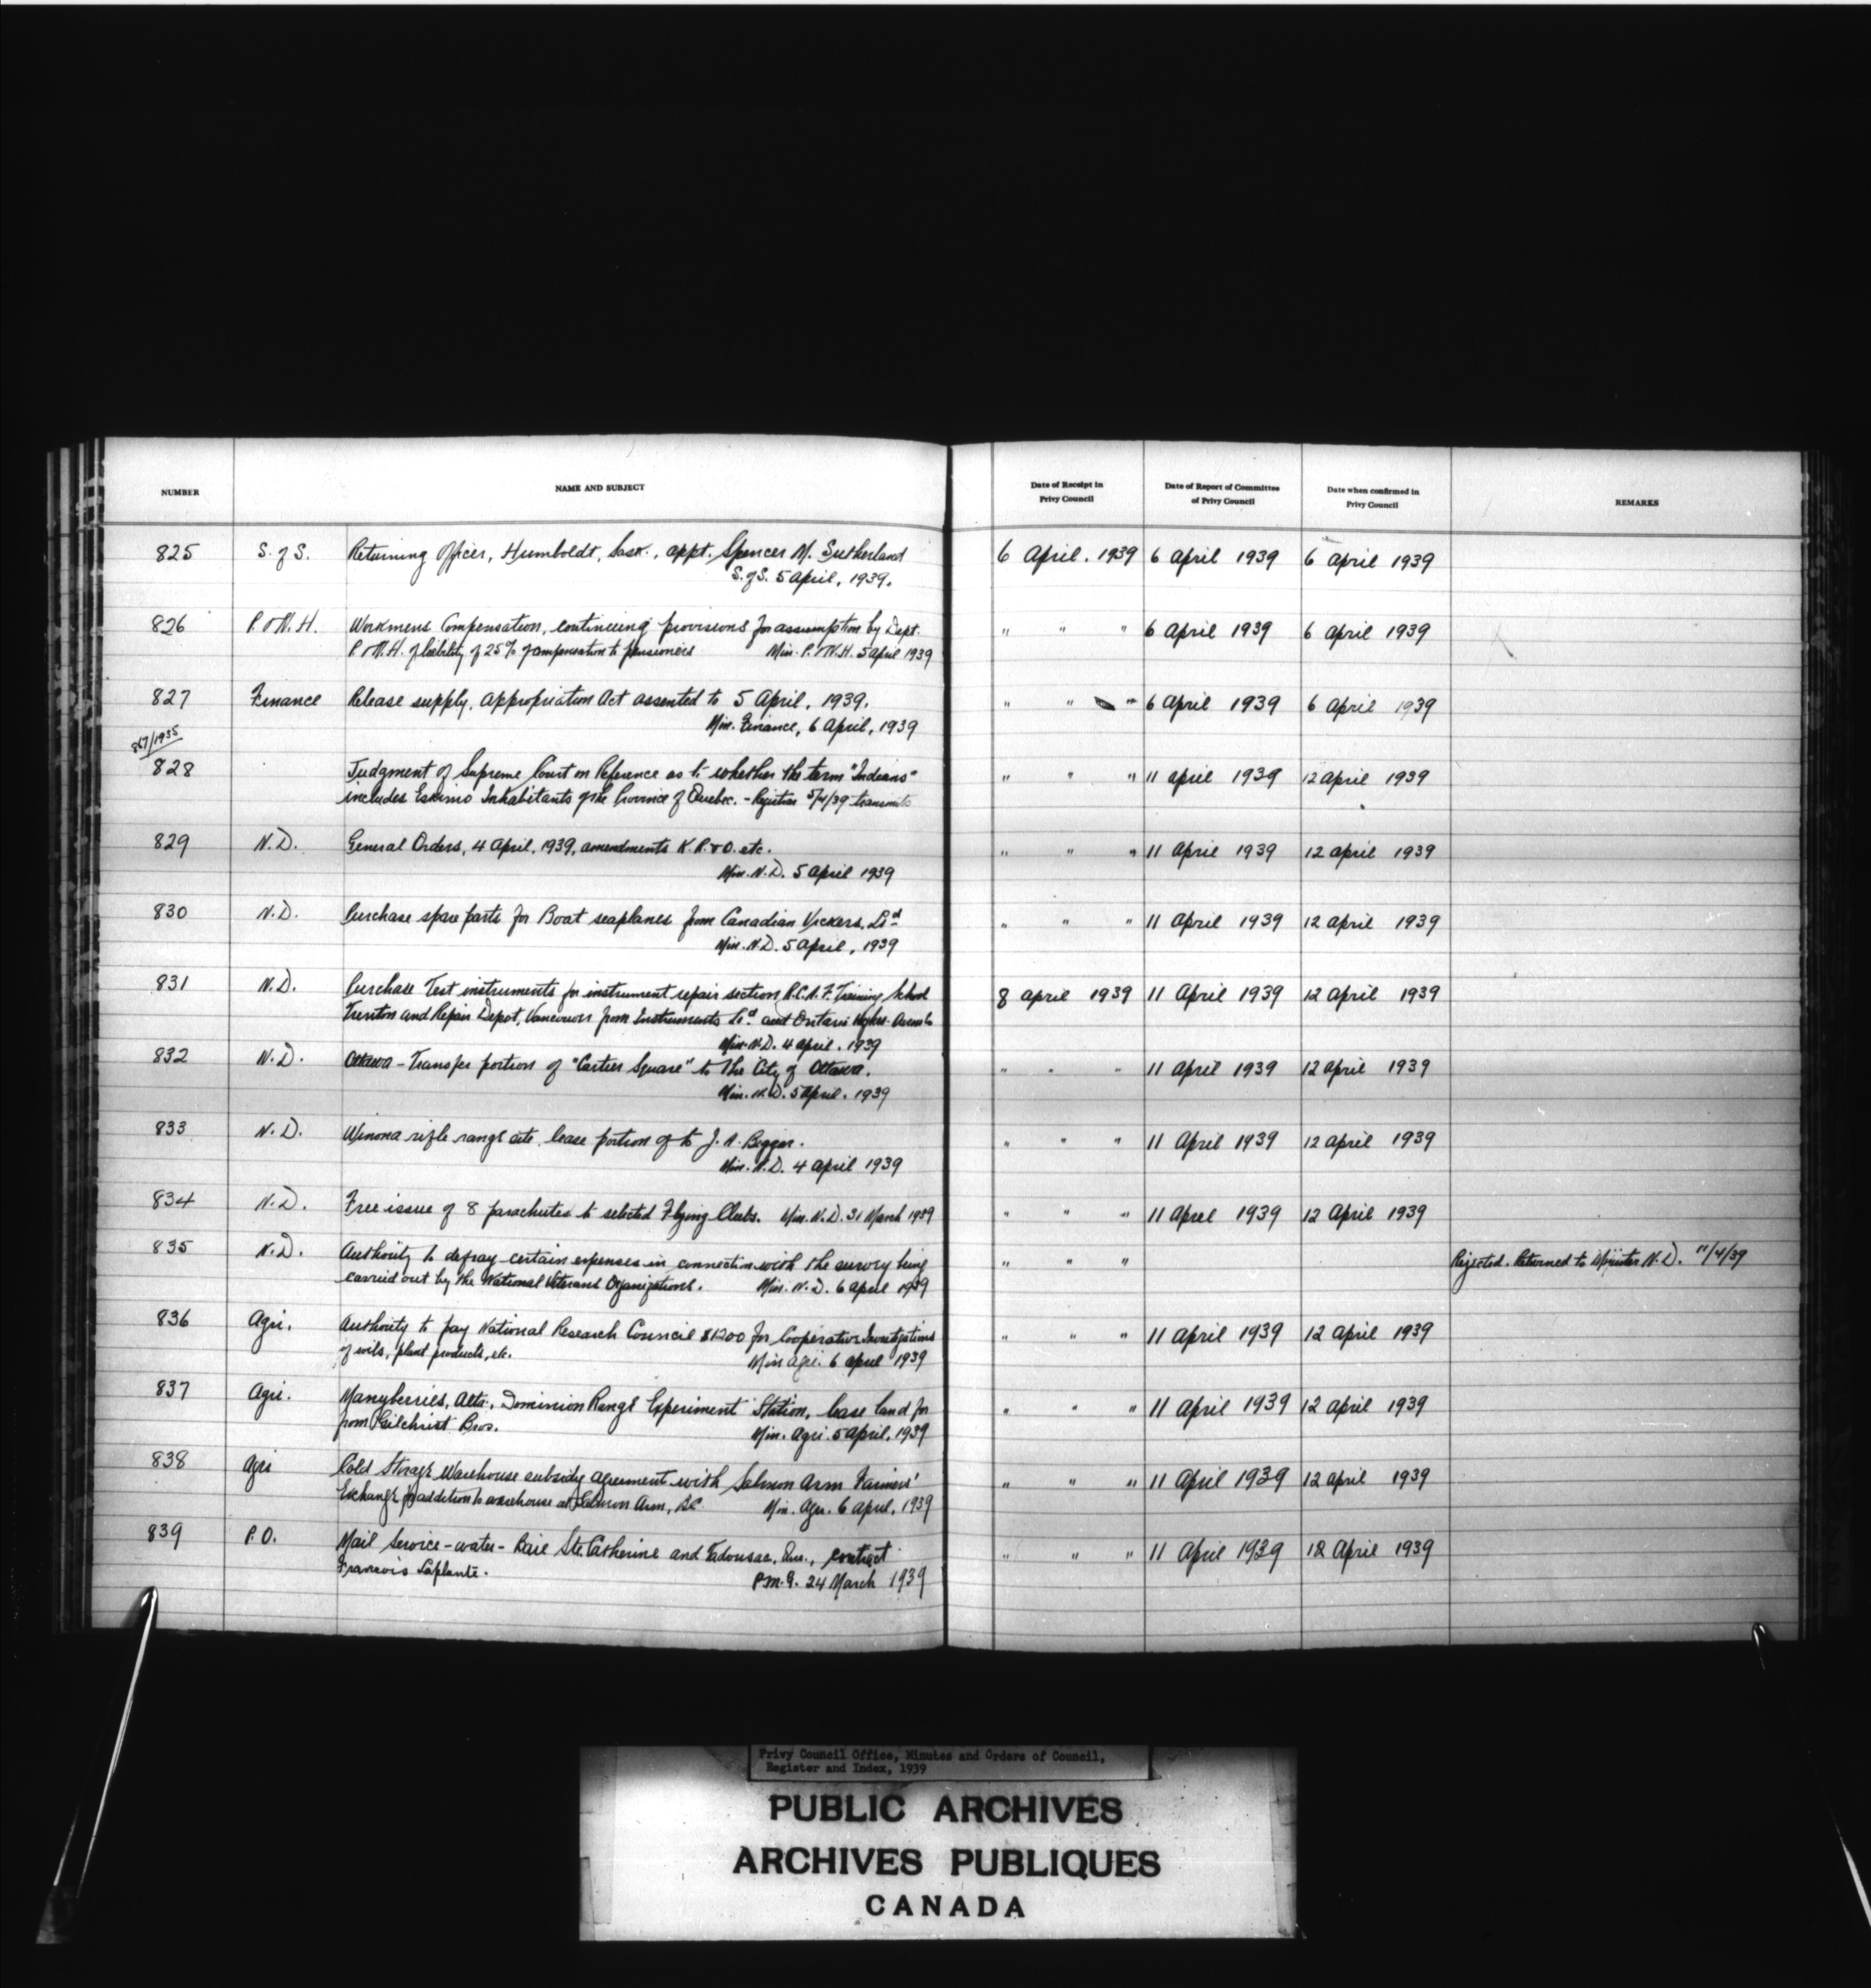 NUMBER NAME AND SUBJECT Date of Receipt in Privy Council Date of Report of Committee of Privy Council Date when confirmed in Privy Council REMARKS
825 S. of S. Returning Officer, Humboldt, Sask., appt. Spencer M. Sutherland 6 April. 1939 6 April 1939 6 April 1939
S. of S. 5 April, 1939.
826 P. & N. H. Workmens Compensation, continuing provisions for assumption by Dept. " " " 6 April 1939 6 April 1939
P. & N. H. of liability of 25% of compensation to pensioners Min. P. & N. H. 5 April 1939
827 Finance Release supply, Appropriation Act assented to 5 April, 1939. " " " 6 April 1939 6 April 1939
Min. Finance, 6 April, 1939
867/1935
828 Judgment of Supreme Court on Reference as to whether the term "Indians" " " " 11 April 1939 12 April 1939
includes Eskimo Inhabitants of the Province of Quebec. - Registrar 5/4/39 transmits
829 N. D. General Orders, 4 April, 1939, amendments K. R. & O. etc. " " " 11 April 1939 12 April 1939
Min. N. D. 5 April 1939
830 N. D. Purchase spare parts for Boat seaplanes from Canadian Vickers, Ltd " " " 11 April 1939 12 April 1939
Min. N. D. 5 April, 1939
831 N. D. Purchase Test instruments for instrument repair section R. C. A. F. Training School 8 April 1939 11 April 1939 12 April 1939
Trenton and Repair Depot, Vancouver from Instruments Ltd. and Ontario Hughes-Owens Co
Min. N. D. 4 April. 1939
832 N. D. Ottawa - Transfer portion of "Cartier Square" to The City of Ottawa. " " " 11 April 1939 12 April 1939
Min. N. D. 5 April. 1939
833 N. D. Winona rifle range site, lease portion of to J. A. Biggar. " " " 11 April 1939 12 April 1939
Min. N. D. 4 April 1939
834 N. D. Free issue of 8 parachutes to selected Flying Clubs. Min. N. D. 31 March 1939 " " " 11 April 1939 12 April 1939
835 N. D. Authority to defray certain expenses in connection with the survey being " " " Rejected. Returned to Minister N. D. 11/4/39
carried out by the National Veterans Organizations. Min. N. D. 6 April 1939
836 Agri. Authority to pay National Research Council $1200 for Cooperative Investigations " " " 11 April 1939 12 April 1939
of soils, plant products, etc. Min Agri. 6 April 1939
837 Agri. Manyberries, Alta., Dominion Range Experiment Station, lease land for " " " 11 April 1939 12 April 1939
from Gilchrist Bros. Min. Agri. 5 April, 1939
838 Agri Cold Storage Warehouse subsidy agreement with Salmon Arm Farmers' " " " 11 April 1939 12 April 1939
Exchange for addition to warehouse at Salmon Arm, B.C. Min. Agr. 6 April, 1939
839 P. O. Mail Service - water - Baie Ste. Catherine and Tadousac, Que., contract " " " 11 April 1939 12 April 1939
Francois Laplante. P. M. G. 24 March 1939
Privy Council Office, Minutes and Orders of Council,
Register and Index, 1939
PUBLIC ARCHIVES
ARCHIVES PUBLIQUES
CANADA